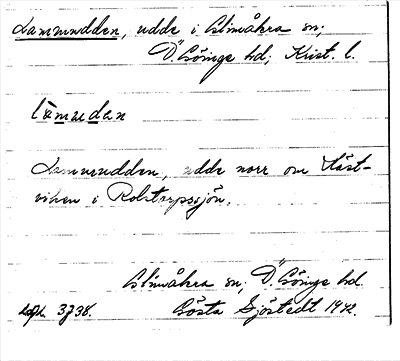 Lammudden, udde i Glimåkra sn;
Ö. Göinge hd; Krist. l.
lämuden
Lammudden, udde norr om Häst-
viken i Rolstorpssjön.
Glimåkra sn, Ö. Göinge hd.
3738. Gösta Sjöstedt 1942.